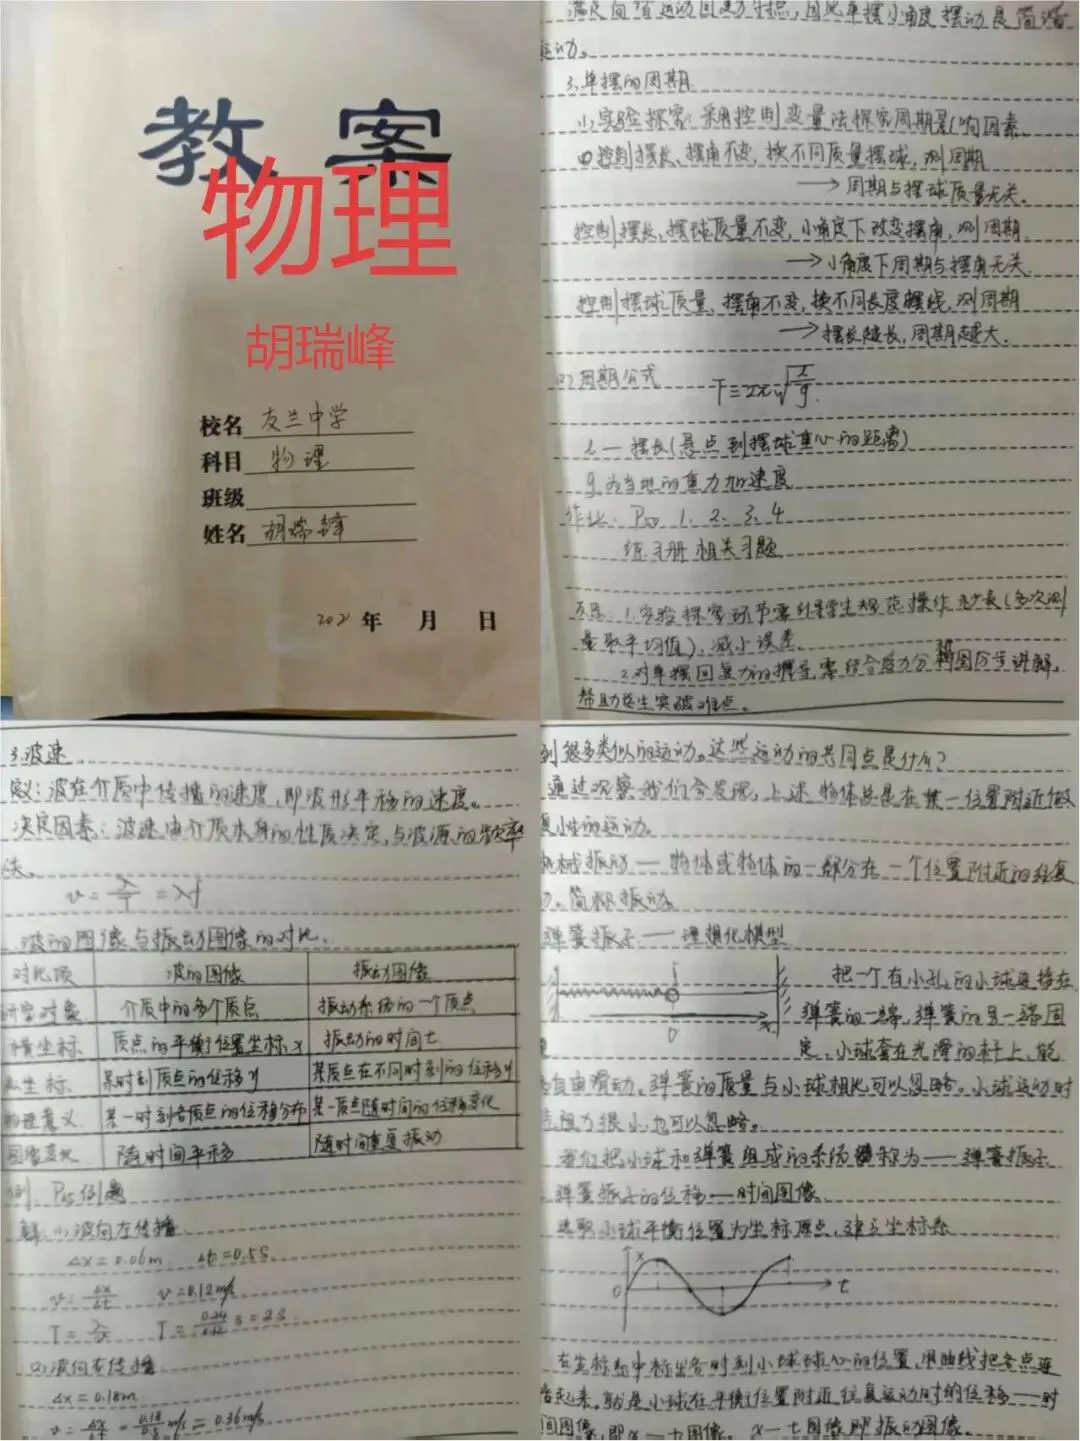 教案
物理
胡瑞峰
校名 友兰中学
科目 物理
班级
姓名 胡瑞峰
2021 年 月 日
满足简谐运动回复力特点,因此单摆小角度摆动是简谐
运动。
3.单摆的周期
(1)实验探究:采用控制变量法探究周期影响因素
①控制摆长、摆角不变,换不同质量摆球,测周期
→周期与摆球质量无关。
控制摆长,摆球质量不变,小角度下改变摆角,测周期
→小角度下周期与摆角无关
控制摆球质量,摆角不变,换不同长度摆线,测周期
→摆长越长,周期越大.
(2)周期公式 T=2π√l/g
l—摆长(悬点到摆球重心的距离)
g为当地的重力加速度
作业: 1、2、3、4
练习册相关习题
反思:1.实验探究环节需引导学生规范操作(多次测
量取平均值),减小误差.
2.对单摆回复力的推导需结合受力分析图分步讲解,
帮助学生突破难点。
3.波速
定义:波在介质中传播的速度,即波形平移的速度。
决定因素:波速由介质本身的性质决定,与波源的频率
无关。
v=λ/T=λf
波的图像与振动图像的对比.
对比项 波的图像 振动图像
研究对象 介质中的多个质点 振动系统的一个质点
横坐标 质点的平衡位置坐标x 振动的时间t
纵坐标 某时刻质点的位移y 某质点在不同时刻的位移y
物理意义 某一时刻各质点的位移分布 某一质点随时间的位移变化
图像变化 随时间平移 随时间重复振动
例. 例题
解:(1)波向左传播
Δx=0.06m Δt=0.5s
v=Δx/Δt v=0.12m/s
T=λ/v T=0.24/0.12 s=2s
(2)波向右传播
Δx=0.18m
v=Δx/Δt=0.18/0.5 m/s=0.36m/s
到很多类似的运动。这些运动的共同点是什么?
通过观察我们会发现,上述物体总是在某一位置附近做
复性的运动。
机械振动——物体或物体的一部分在一个位置附近的往复
动。简称振动
弹簧振子——理想化模型
O x
把一个有小孔的小球连接在
弹簧的一端,弹簧的另一端固
定,小球套在光滑的杆上,能
自由滑动。弹簧的质量与小球相比可以忽略。小球运动时
阻力很小也可以忽略。
我们把小球和弹簧组成的系统称为——弹簧振子
弹簧振子的位移—时间图像
选取小球平衡位置为坐标原点,建立坐标系
x
O t
在坐标系中标出各时刻小球球心的位置,用曲线把各点连
接起来,就是小球在平衡位置附近往复运动时的位移——时
间图像,即x—t图像。x—t图像即振动图像。